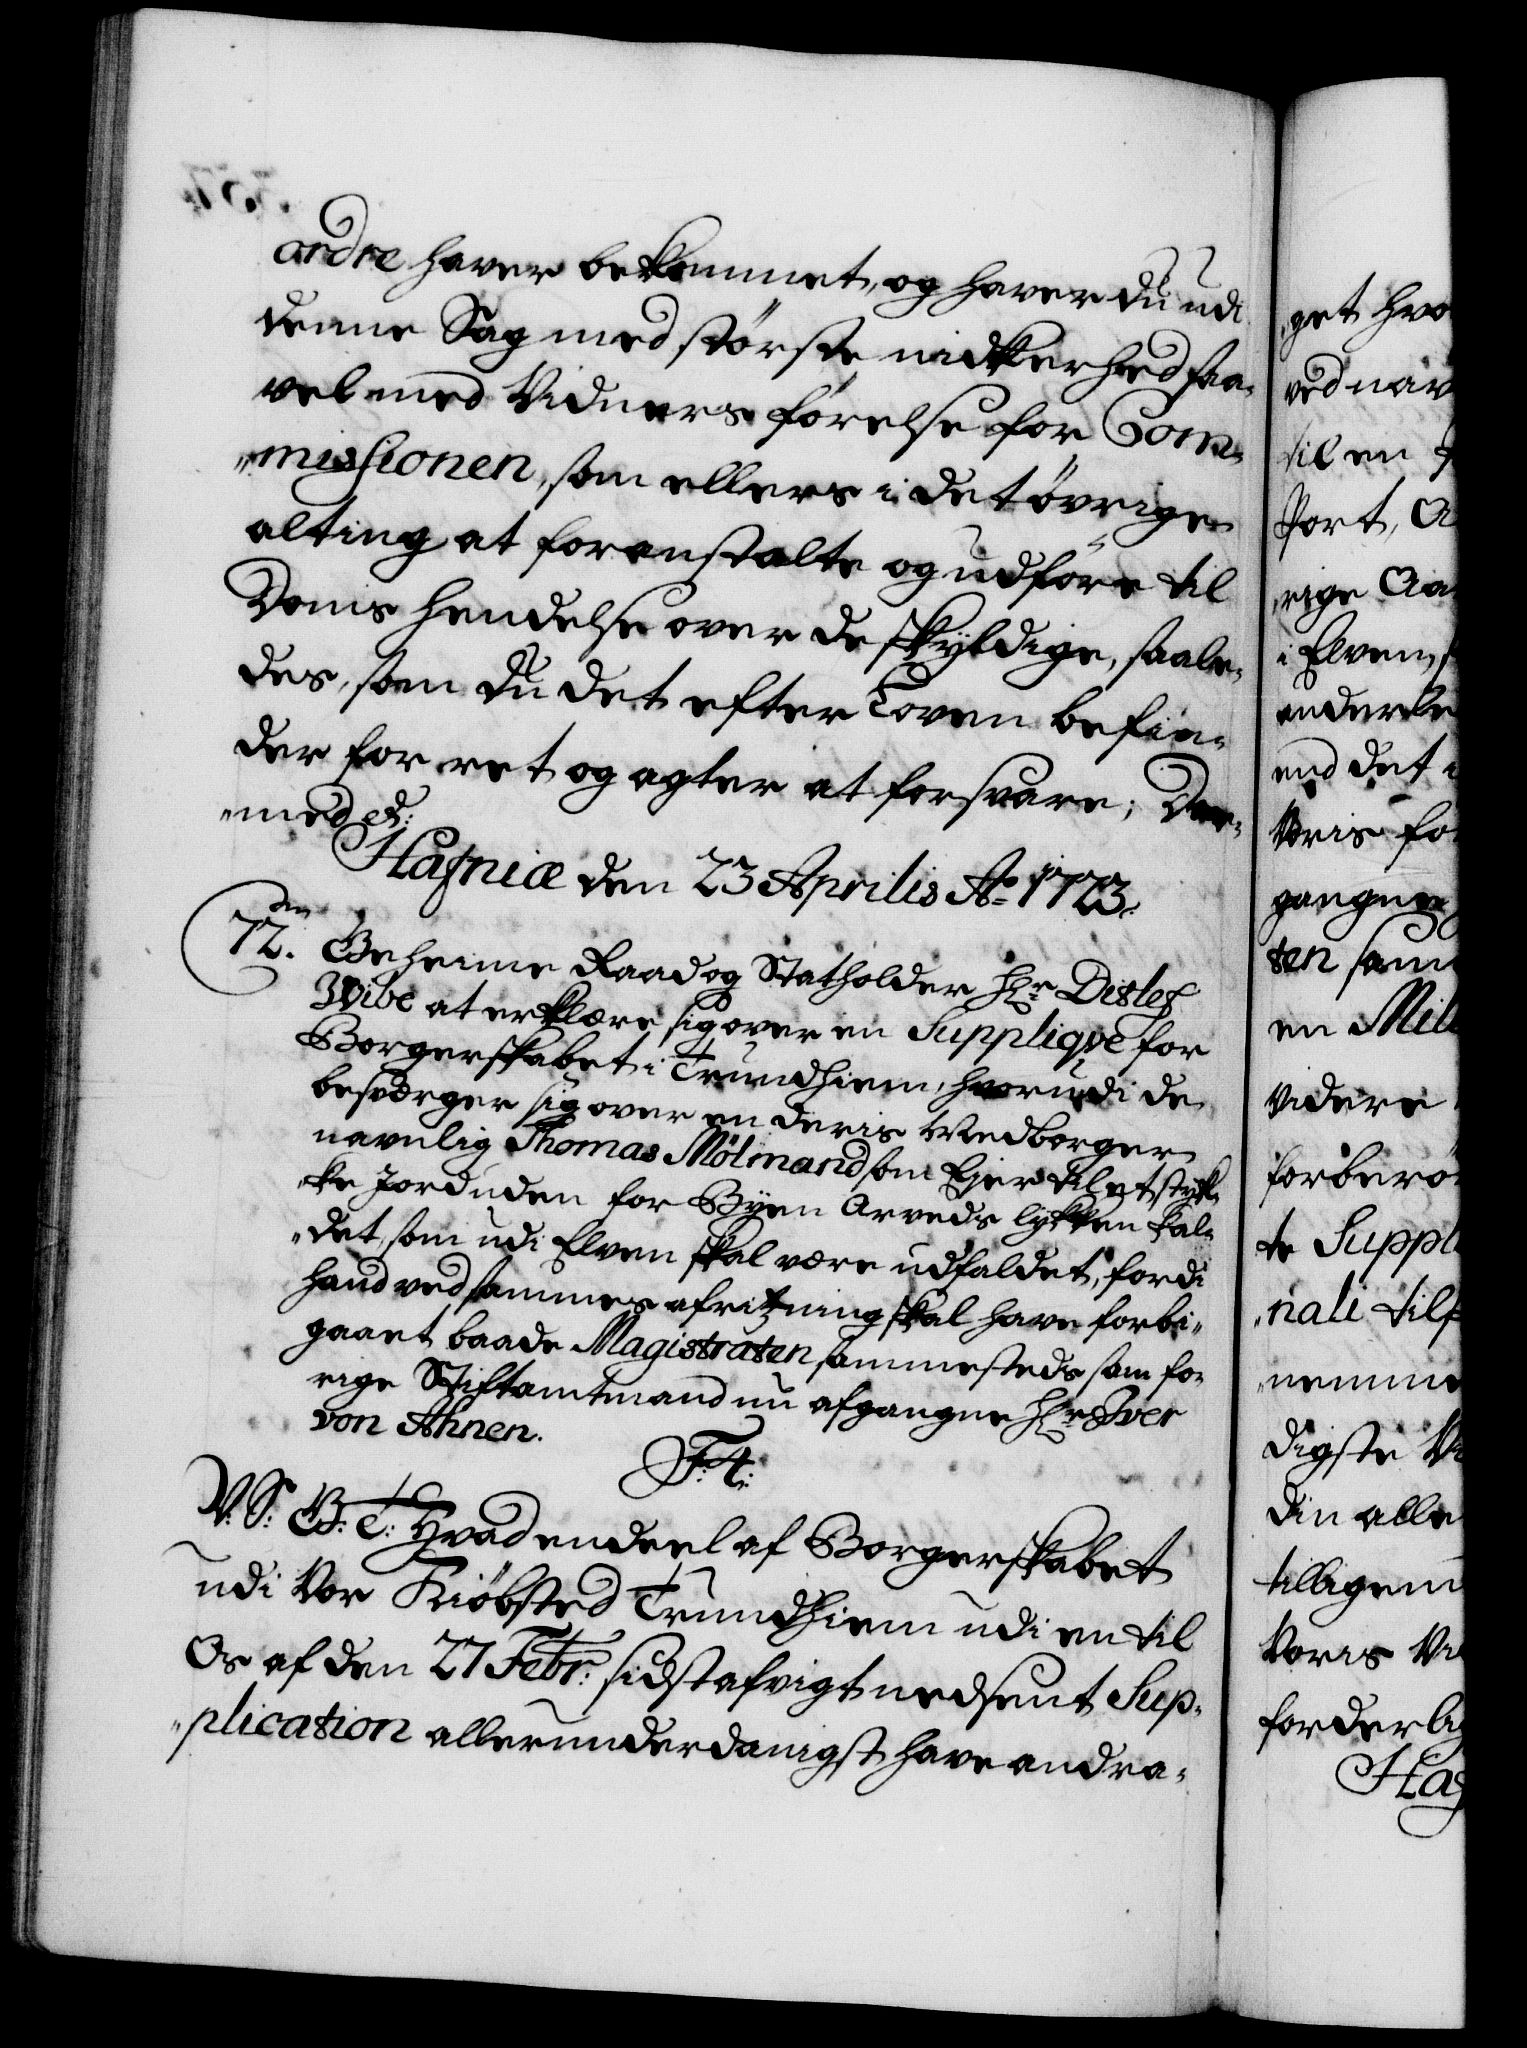 ordre haver bekommet, og haver du udi
denne Sag med störste nidkierhed saa-
vel med Vidners förelse for Com-
missionen, som ellers i det övrige
alting at foranstalte og udföre til
Doms hendelse over de skyldige, saale-
des, som du det efter Loven befin-
der for ret og agter at forsvare; Der-
med etc:
Hafniæ den 23 Aprilis Ao 1723.
72. Geheime Raad og Statholder Hr. Ditlef
Wibe at erklære sig over en Supplique for
Borgerskabet i Trundhiem, hvorudi de
besværger sig over en deris Medborger
navnlig Thomas Mölmand som Ejer til et styk-
ke Jord uden for Byen Arveds lykken kal-
det, som udi Elven skal være udfaldet, fordi
hand ved sammes afritzning skal have forbi-
gaaet baade Magistraten sammesteds som for-
rige Stiftamtmand nu afgangne Hr. Iver
von Ahnen.
F: 4:
V. S: G: T: Hvad endeel af Borgerskabet
udi Vor Kiöbsted Trundhiem udi en til
Os af den 27 Febr: sidst afvigt nedsent Sup-
plication allerunderdanigst have andra-
get hvo
ved nav
til en
Port, A
rige Aa
i Elven,
anderle
end det
Vris for
gangne
ten sam
en Mil
videre
forberö
te Suppl
nali tilf
nemme
digste Vi
din alle
tilligem
Voris Vi
forderlig
Haf